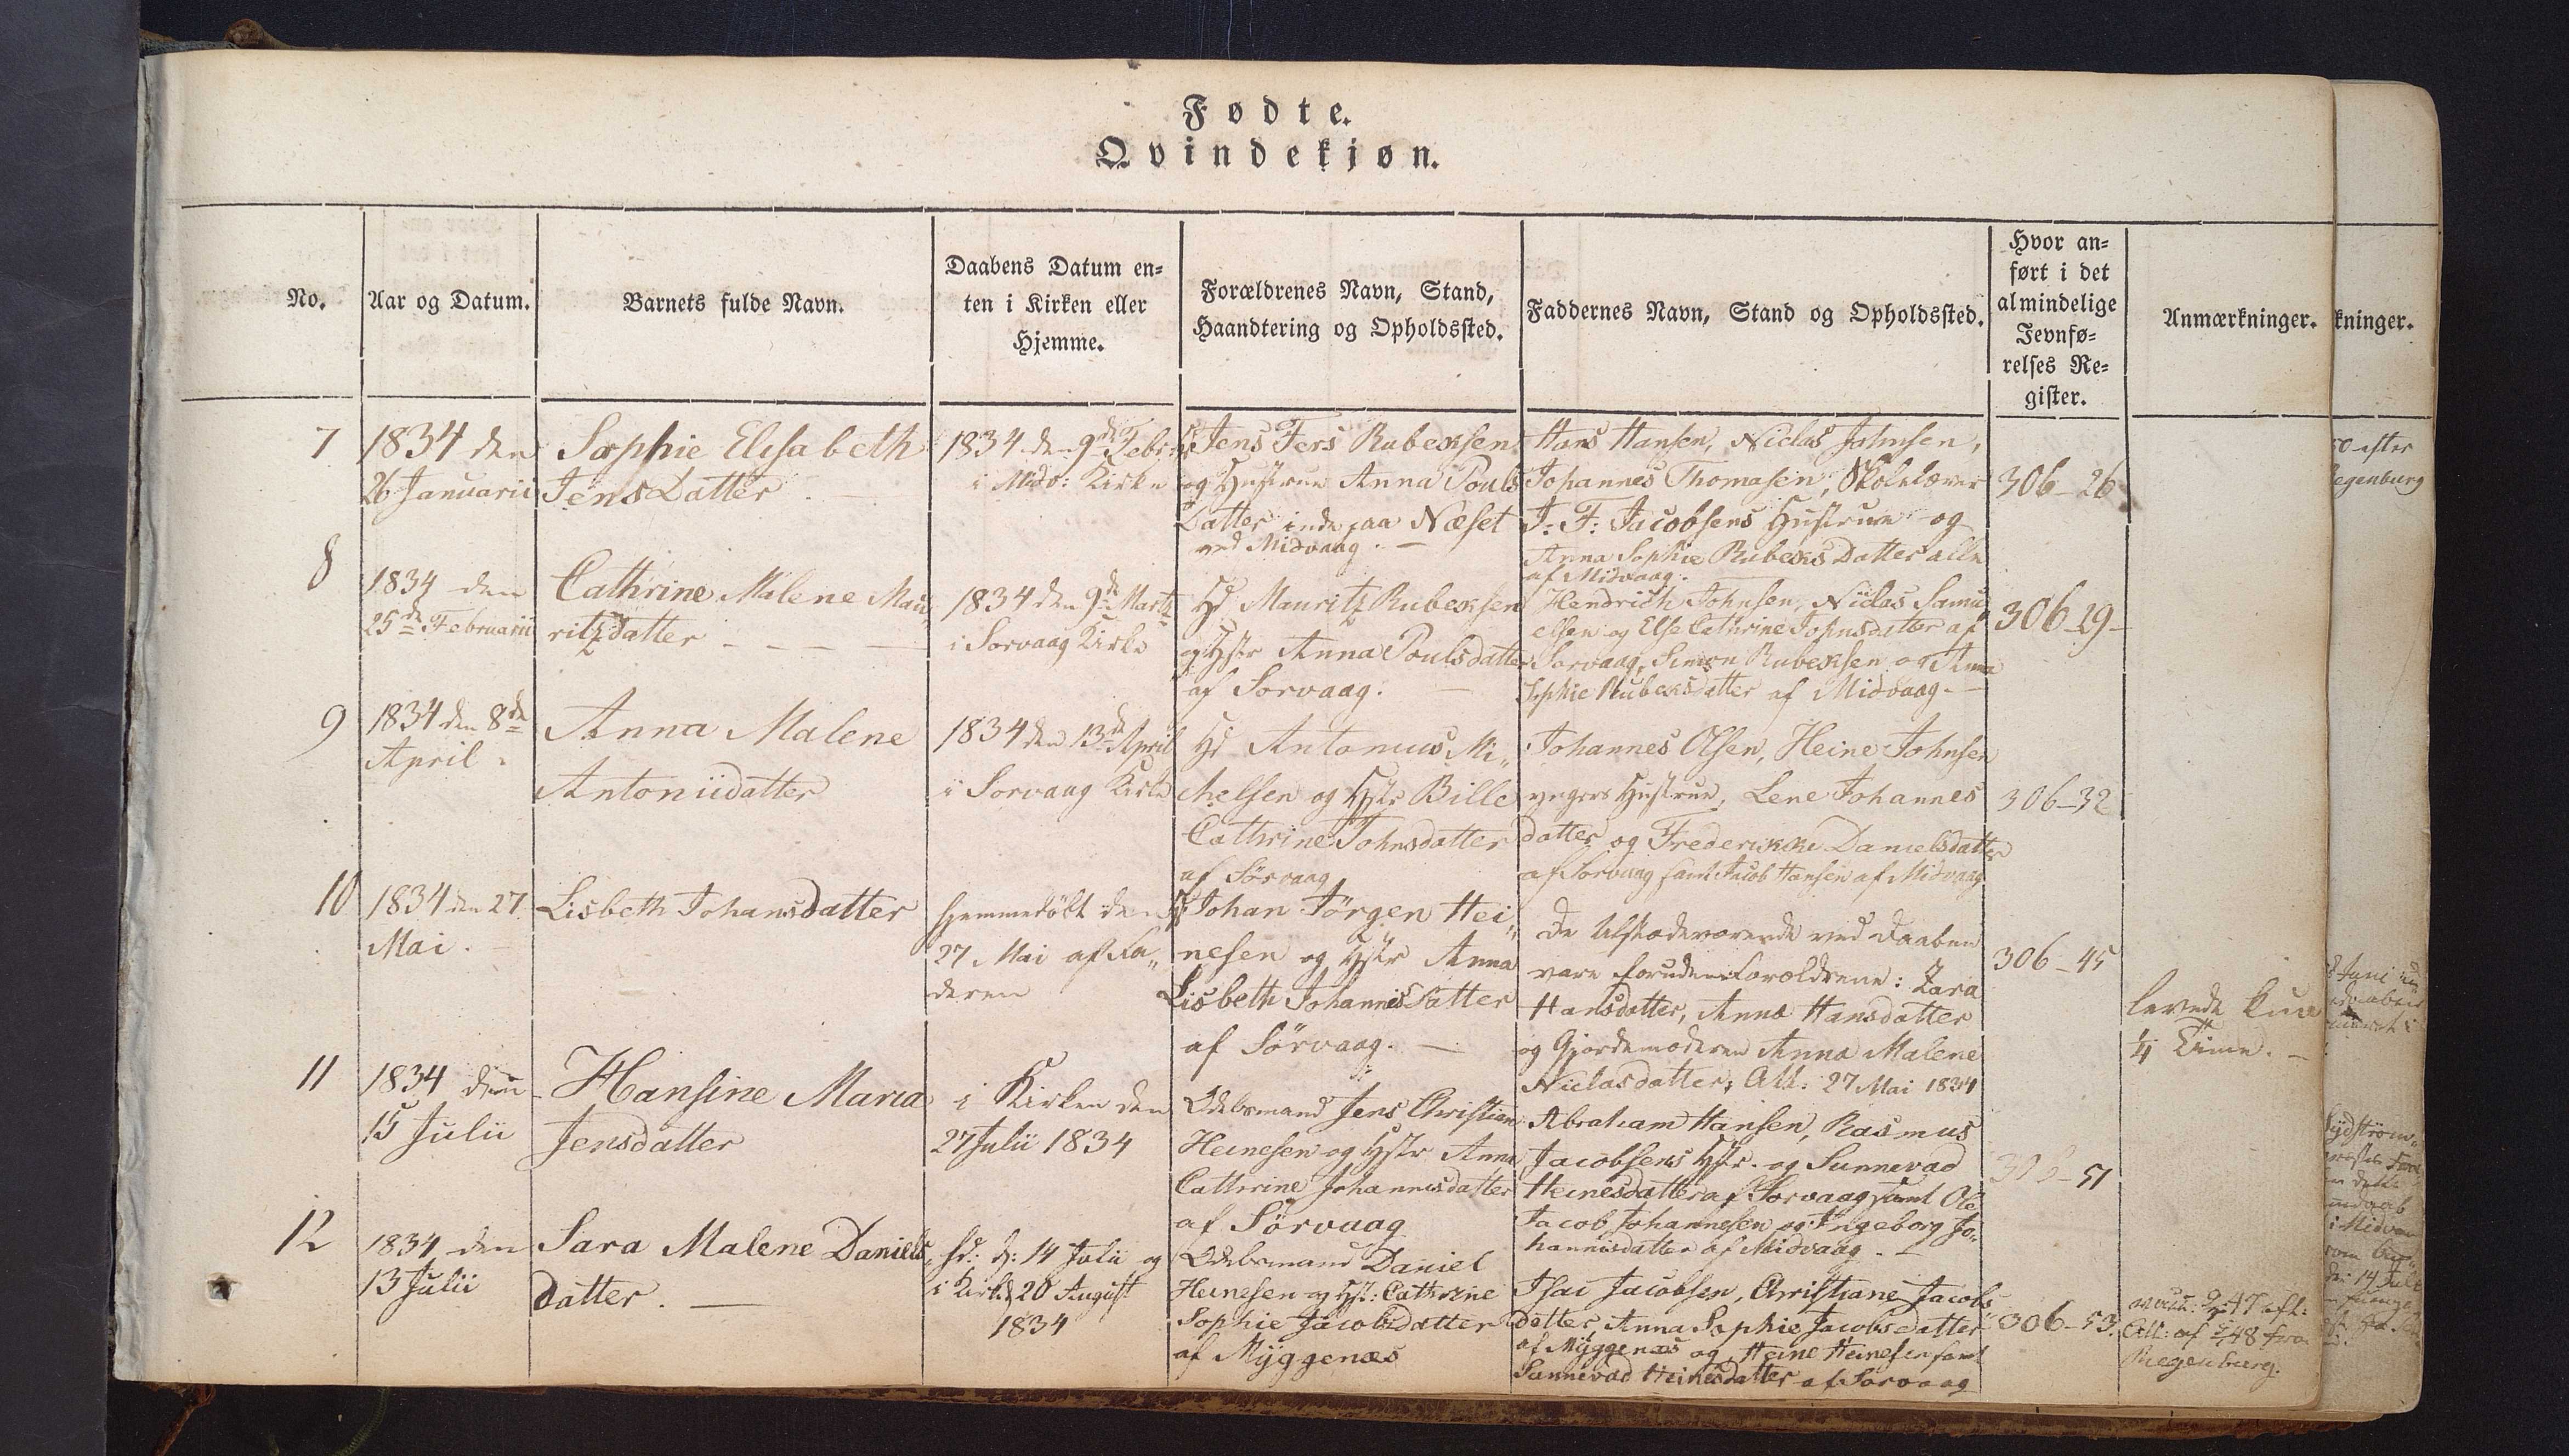 Fødte.
Qvindekjøn.
No.
Aar og Datum.
Barnets fulde Navn.
Daabens Datum en-
ten i Kirken eller
Hjemme.
Forældrenes Navn, Stand,
Haandtering og Opholdssted.
Faddernes Navn, Stand og Opholdssted.
Hvor an-
ført i det
almindelige
Jevnfø-
relses Re-
gister.
Anmærkninger.
kninger.
7
1834 den
26 Januarii
Sophie Elisabeth
JensDatter
1834 den 9de Febr:
i Midv: Kirke
Jens Fers Rubeksen
og Hustrue Anna Pouls
Datter inde paa Næset
ved Midvaag. —
Hans Hansen, Niclas Johnsen,
Johannes Thomasen, Skolelærer
J: F: Jacobsens Hustrue og
Anna Sophie RubeksDatter alle
af Midvaag.
306-26
8
1834 den
25de Februarii
Cathrine Malene Mau
ritzdatter
1834 den 9de Martz
i Sorvaag Kirke
Hd Mauritz Rubeksen
og Hstr Anna Poulsdatter
af Sorvaag. —
Hendrich Johnsen, Niclas Samu
elsen og Else Cathrine Johnsdatter af
Sorvaag, Simon Rubeksen og Anna
Sophie Rubeksdatter af Midvaag. —
306-29-
9
1834 den 8de
April.
Anna Malene
Antoniidatter
1834 den 13de April
i Sorvaag Kirke
Hd Antonius Mi„
chelsen og Hstr Bille
Cathrine Johnsdatter
af Sörvaag
Johannes Olsen, Heine Johnsen
yngers Hustrue, Lene Johannes
datter og Frederikke Danielsdatter
af Sorvaag samt Jacob Hansen af Midvaag
306-32
10
1834 den 27.
Mai.
Lisbeth Johansdatter
hjemmedöbt den
27 Mai af Fa„
deren
Hd Johan Jörgen Hei„
nesen og Hstr Anna
Lisbeth JohannisDatter
af Sörvaag. —
De tilstedeværende ved Daaben
vare foruden Forældrene: Zara
Hansdatter, Anna Hansdatter
og Gjordemoderen Anna Malene
Niclasdatter; Att: 27 Mai 1834
306-45
levede kun
¼ Time. —
11
1834 den
15 Julii
Hansine Maria
Jensdatter
i Kirken den
27 Julii 1834
Odelsmand Jens Christian
Heinesen og Hstr Anna
Cathrine Johannisdatter
af Sörvaag
Abraham Hansen, Rasmus
Jacobsens Hstr. og Sunnevad
Heinesdatter af Sorvaag samt Ole
Jacob Johannesen og Ingeborg Jo„
hannisdatter af Midvaag. —
306-51
12
1834 den
13 Julii
Sara Malene Daniels
datter. —
hd: d: 14 Julii og
i Kirke d 20 August
1834
Odelsmand Daniel
Heinesen og Hst: Cathrine
Sophie Jacobsdatter
af Myggenæs
Isac Jacobsen, Christiane Jacobs
datter, Anna Sophie Jacobsdatter
af Myggenæs og Heine Heinesen samt
Sunnevad Heinesdatter af Sorvaag
306-53.
47 eft:
Att: af 48 fra
Regenburg.